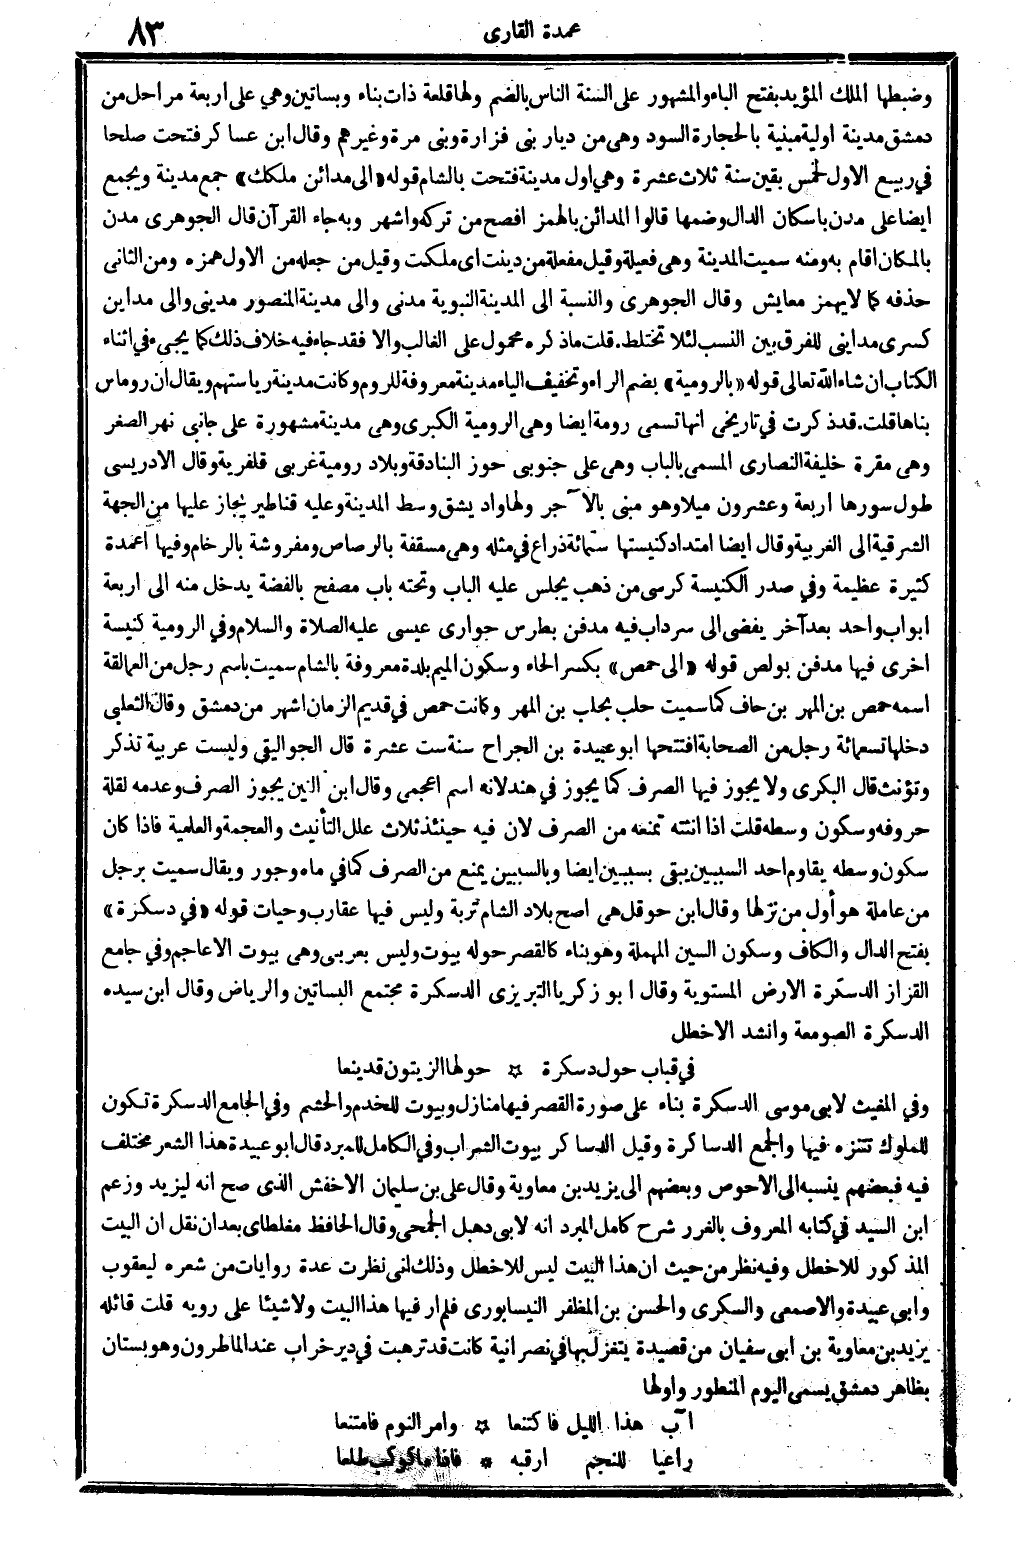 عمدة القارى ٨٣
وضبطها الملك المؤيد بفتح الباء والمشهور على السنة الناس بالضم ولها قلعة ذات بناء وبساتين وهي على اربعة مراحل من
دمشق مدينة اولية مبنية بالحجارة السود وهى من ديار بنى فزارة وبنى مرة وغيرهم وقال ابن عساكر فتحت صلحا
في ربيع الاول لخمس بقين سنة ثلاث عشرة وهي اول مدينة فتحت بالشام قوله «الى مدائن ملكك» جمع مدينة ويجمع
ايضا على مدن باسكان الدال وضمها قالوا المدائن بالهمز افصح من تركه واشهر وبه جاء القرآن قال الجوهرى مدن
بالمكان اقام به ومنه سميت المدينة وهى فعيلة وقيل مفعلة من دينت اى ملكت وقيل من جعله من الاول همزه ومن الثانى
حذفه كما لا يهمز معايش وقال الجوهرى والنسبة الى المدينة النبوية مدنى والى مدينة المنصور مدينى والى مداين
كسرى مداينى للفرق بين النسب لئلا تختلط. قلت ماذكره محمول على الغالب والا فقد جاء فيه خلاف ذلك كما يجىء في اثناء
الكتاب ان شاء الله تعالى قوله «بالرومية» بضم الراء وتخفيف الياء مدينة معروفة للروم وكانت مدينة رياستهم ويقال ان روماس
بناها قلت. قد ذكرت في تاريخى انها تسمى رومة ايضا وهى الرومية الكبرى وهى مدينة مشهورة على جانبى نهر الصغر
وهى مقرة خليفة النصارى المسمى بالباب وهى على جنوبى حوز البنادقة وبلاد رومية غربى قلفرية وقال الادريسى
طول سورها اربعة وعشرون ميلا وهو مبنى بالآجر ولها واد يشق وسط المدينة وعليه قناطير يجاز عليها من الجهة
الشرقية الى الغربية وقال ايضا امتداد كنيستها ستمائة ذراع في مثله وهى مسقفة بالرصاص ومفروشة بالرخام وفيها اعمدة
كثيرة عظيمة وفي صدر الكنيسة كرسى من ذهب يجلس عليه الباب وتحته باب مصفح بالفضة يدخل منه الى اربعة
ابواب واحد بعد آخر يفضى الى سرداب فيه مدفن بطرس حوارى عيسى عليه الصلاة والسلام وفي الرومية كنيسة
اخرى فيها مدفن بولص قوله «الى حمص» بكسر الحاء وسكون الميم بلدة معروفة بالشام سميت باسم رجل من العمالقة
اسمه حمص بن المهر بن حاف كما سميت حلب بحلب بن المهر وكانت حمص في قديم الزمان اشهر من دمشق وقال الثعلبى
دخلها تسعمائة رجل من الصحابة افتتحها ابو عبيدة بن الجراح سنة ست عشرة قال الجواليقى وليست عربية تذكر
وتؤنث قال البكرى ولا يجوز فيها الصرف كما يجوز في هند لانه اسم اعجمى وقال ابن التين يجوز الصرف وعدمه لقلة
حروفه وسكون وسطه قلت اذا انثته تمنعه من الصرف لان فيه حينئذ ثلاث علل التأنيث والعجمة والعلمية فاذا كان
سكون وسطه يقاوم احد السببين يبقى بسببين ايضا وبالسببين يمنع من الصرف كما في ماه وجور ويقال سميت برجل
من عاملة هو أول من نزلها وقال ابن حوقل هى اصح بلاد الشام تربة وليس فيها عقارب وحيات قوله «في دسكرة»
بفتح الدال والكاف وسكون السين المهملة وهو بناء كالقصر حوله بيوت وليس بعربى وهى بيوت الاعاجم وفي جامع
القزاز الدسكرة الارض المستوية وقال ابو زكريا التبريزى الدسكرة مجتمع البساتين والرياض وقال ابن سيده
الدسكرة الصومعة وانشد الاخطل
في قباب حول دسكرة ☆ حولها الزيتون قد ينعا
وفي المغيث لابى موسى الدسكرة بناء على صورة القصر فيها منازل وبيوت للخدم والحشم وفي الجامع الدسكرة تكون
للملوك تتنزه فيها والجمع الدساكرة وقيل الدساكر بيوت الشراب وفي الكامل للمبرد قال ابو عبيدة هذا الشعر مختلف
فيه فبعضهم ينسبه الى الاحوص وبعضهم الى يزيد بن معاوية وقال على بن سليمان الاخفش الذى صح انه ليزيد وزعم
ابن السيد في كتابه المعروف بالغرر شرح كامل المبرد انه لابى دهبل الجمحى وقال الحافظ مغلطاى بعد ان نقل ان البيت
المذكور للاخطل وفيه نظر من حيث ان هذا البيت ليس للاخطل وذلك انى نظرت عدة روايات من شعره ليعقوب
وابى عبيدة والاصمعى والسكرى والحسن بن المظفر النيسابورى فلم ار فيها هذا البيت ولا شيئا على رويه قلت قائله
يزيد بن معاوية بن ابى سفيان من قصيدة يتغزل بها في نصرانية كانت قد ترهبت في دير خراب عند الماطرون وهو بستان
بظاهر دمشق يسمى اليوم المنطور واولها
آب هذا الليل فاكتنعا ☆ وامر النوم فامتنعا
راعيا للنجم ارقبه ☆ فاذا ما كوكب طلعا